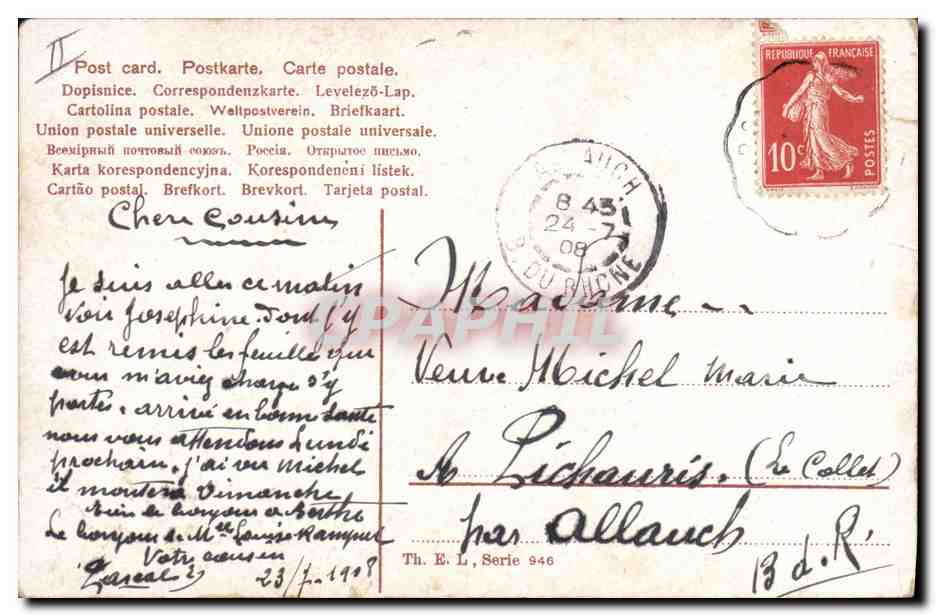 II
Post card. Postkarte. Carte postale.
Dopisnice. Correspondenzkarte. Levelezõ-Lap.
Cartolina postale. Weltpostverein. Briefkaart.
Union postale universelle. Unione postale universale.
Всемірный почтовый союзъ. Россія. Открытое письмо.
Karta korespondencyjna. Korespondenční lístek.
Cartão postal. Brefkort. Brevkort. Tarjeta postal.
REPUBLIQUE FRANÇAISE
10c
POSTES
ALLAUCH
8 45
24 - 7
08
B. DU RHONE
Chere Cousine
Je suis aller ce matin
voir Josephine. dont j'y
est remis les feuille que
vous m'aviez charge d'y
porter. arrivé en bonne santé
nous vous attendons Lundi
prochain, j'ai vu Michel
il montera Dimanche
bonjour a Berthe
Le bonjour de Mlle Louise
Votre cousin
Pascal
23/7-1908
Madame
Veuve Michel Marie
A Pichauris. (Le Collet)
par Allauch
B d. R.
CPAPHIL
Th. E. L., Serie 946